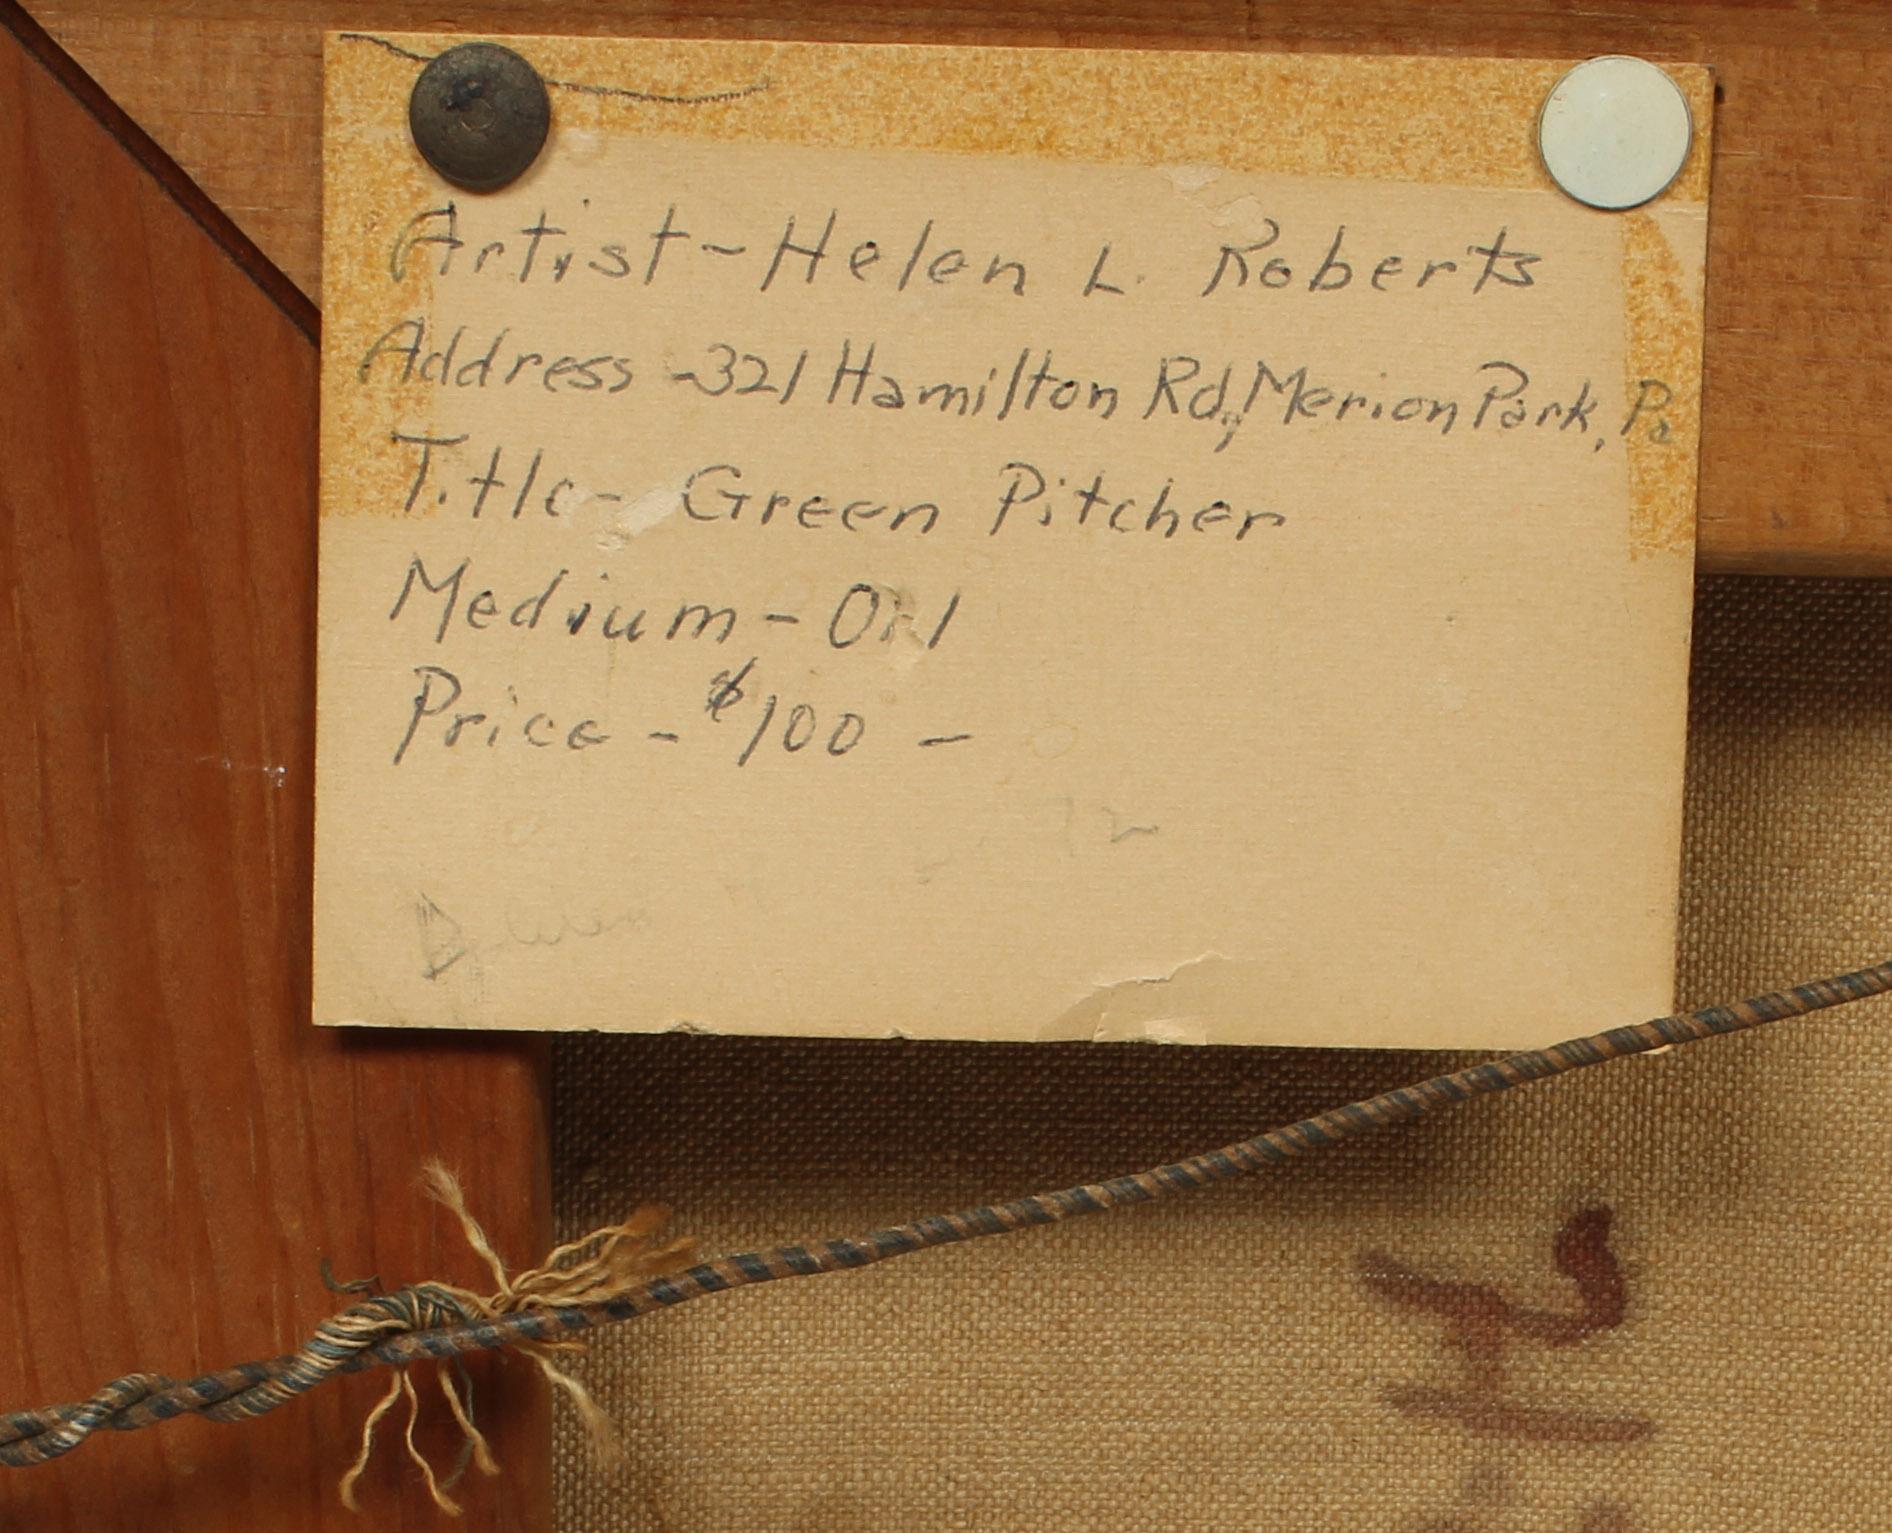 Artist - Helen L. Roberts
Address - 321 Hamilton Rd., Merion Park, Pa
Title - Green Pitcher
Medium - Oil
Price - $100 -
12